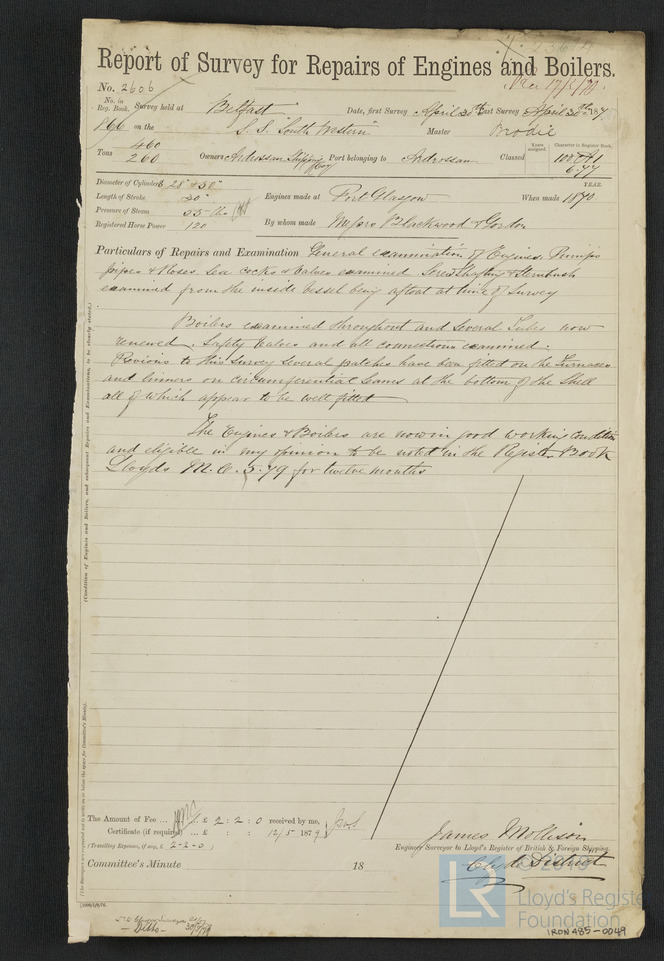 Report of Survey for Repairs of Engines and Boilers.
No. 2606
No. in Reg. Book. Survey held at Belfast Date, first Survey April 30th Last Survey April 30th 187
866 on the S.S. "South Western" Master Brodie
Tons 460 260 Owners Ardrossan Shipping Coy Port belonging to Ardrossan Classed Years assigned. Character in Register Book. 100 A1 6.77
Diameter of Cylinders 28" + 50" YEAR.
Length of Stroke 30" Engines made at Port Glasgow When made 1870
Pressure of Steam 55
Registered Horse Power 120 By whom made Messrs Blackwood & Gordon
Particulars of Repairs and Examination General examination of Engines. Pumps
pipes & Roses. Sea cocks & valves examined. Screw Shafting & Sternbush
examined from the inside Vessel being afloat at time of Survey
Boilers examined throughout and Several Tubes now
renewed. Safety Valves and all connections examined.
Previous to this Survey Several patches have been fitted on the Furnaces
and on circumferential Seams at the bottom of the Shell
all of which appear to be well fitted
The Engines & Boilers are now in good working condition
and eligible in my opinion to be noted in the Register Book
Lloyds M.C. 5.79 for twelve months
(Condition of Engines and Boilers, and subsequent Repairs and Examinations, to be clearly stated.)
The Amount of Fee ... £ 2 : 2 : 0 received by me,
Certificate (if required) ... £ : : 12/5 1879
(Travelling Expenses, if any, £ 2-2-0)
James Mollison
Engineer Surveyor to Lloyd's Register of British & Foreign Shipping.
Clyde District
Committee's Minute 18
Ditto
LR
© 2019
Lloyd's Register
Foundation
IRON485-0049